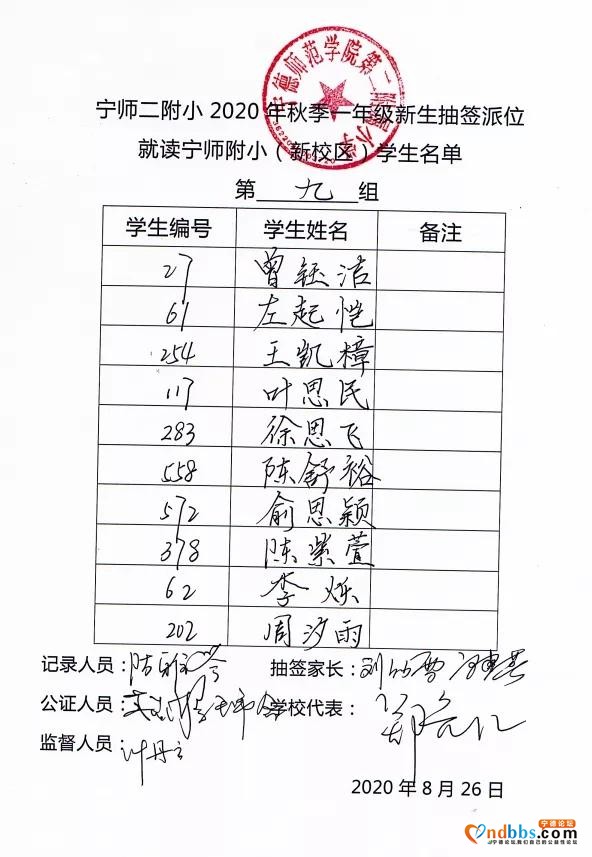 宁德师范学院第二附属小学
宁师二附小 2020 年秋季一年级新生抽签派位
就读宁师附小（新校区）学生名单
第 九 组
学生编号 学生姓名 备注
27 曾钰洁
61 左起恺
254 王凯樟
117 叶思民
283 徐思飞
558 陈舒裕
572 俞思颖
378 陈紫萱
62 李烁
202 周汐雨
记录人员： 抽签家长：
公证人员： 学校代表：
监督人员：
2020 年 8 月 26 日
ndbbs.com 宁德论坛
宁德论坛,我们自己的公益性论坛